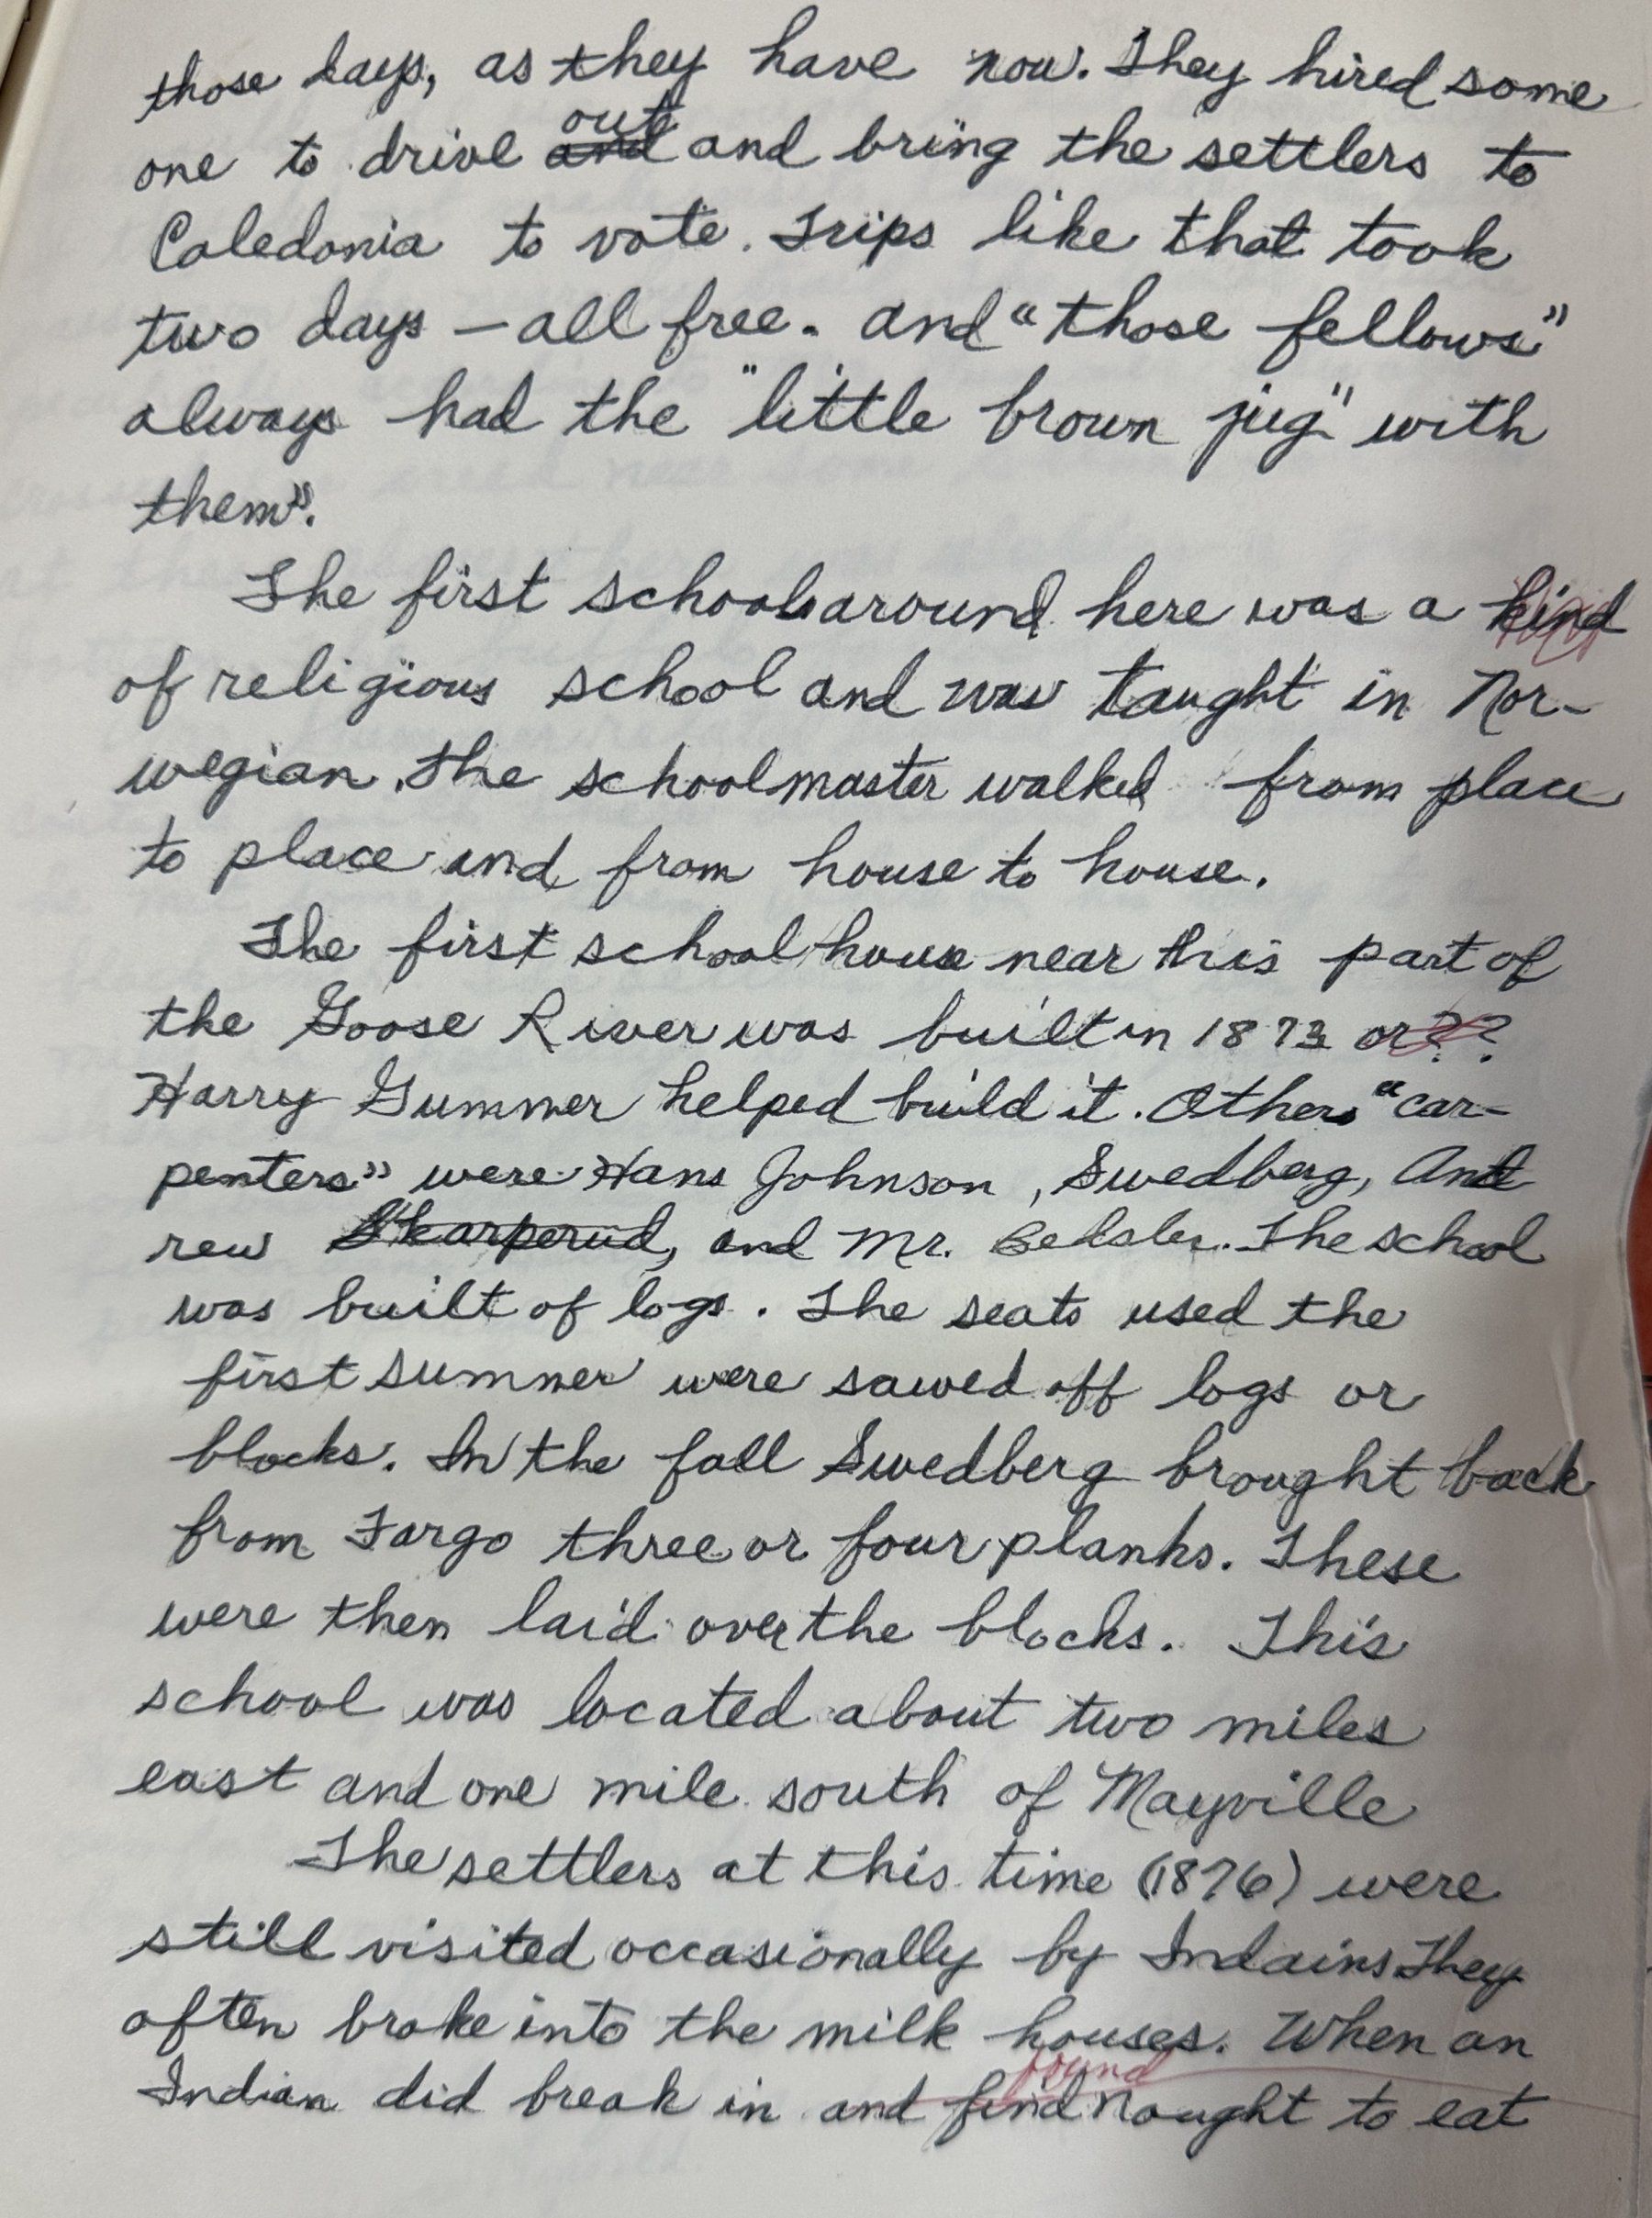 those days, as they have now. They hired some
one to drive and out and bring the settlers to
Caledonia to vote. Trips like that took
two days – all free. and "those fellows"
always had the "little brown jug" with
them".
The first schools around here was a kind
of religious school and was taught in Nor-
wegian. The schoolmaster walked from place
to place and from house to house.
The first school house near this part of
the Goose River was built in 1873 or??
Harry Gummer helped build it. Others "car-
penters" were Hans Johnson, Swedberg, And
rew Skarperud, and Mr. The school
was built of logs. The seats used the
first summer were sawed off logs or
blocks. In the fall Swedberg brought back
from Fargo three or four planks. These
were then laid over the blocks. This
school was located about two miles
east and one mile south of Mayville
The settlers at this time (1876) were
still visited occasionally by Indains. They
often broke into the milk houses. When an
found
Indian did break in and find nought to eat